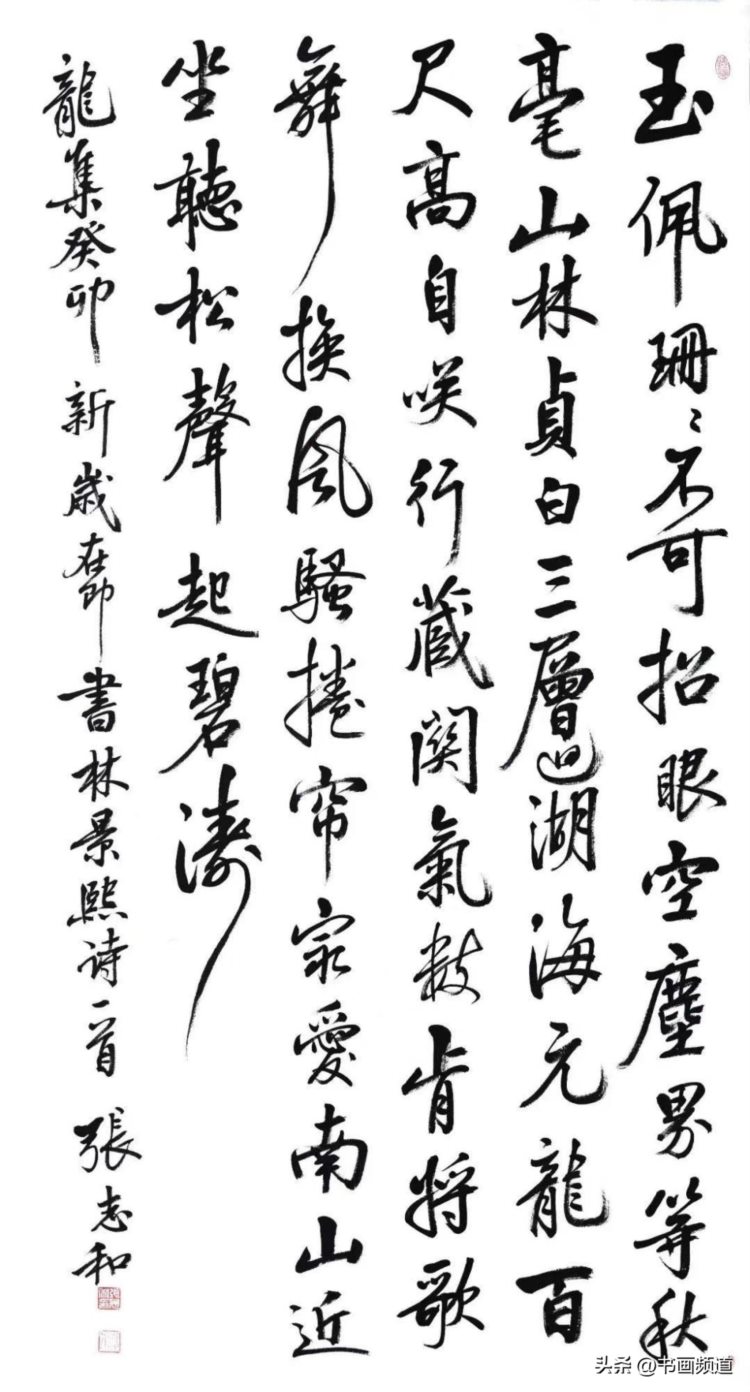 玉佩珊〻不可招眼空塵界等秋
毫山林貞白三層迥湖海元龍百
尺高自咲行藏関氣數肯將歌
舞換風騷捲帘㝡愛南山近
坐聽松聲起碧濤
龍集癸卯新歲在即書林景熙诗一首 張志和
头条 @书画频道